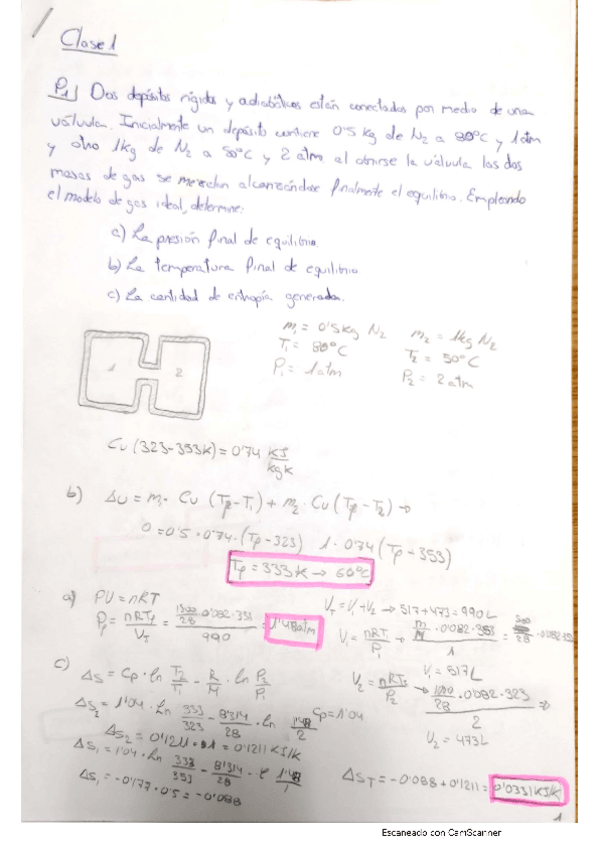 Clase 1
P1 Dos depósitos rígidos y adiabáticos están conectados por medio de una
válvula. Inicialmente un depósito contiene 0'5 kg de N2 a 80ºC y 1 atm
y otro 1kg de N2 a 50ºC y 2 atm al abrirse la válvula las dos
masas de gas se mezclan alcanzándose finalmente el equilibrio. Empleando
el modelo de gas ideal, determine:
a) La presión final de equilibrio
b) La temperatura final de equilibrio
c) La cantidad de entropía generada.
m1 = 0'5kg N2 m2 = 1kg N2
T1 = 80ºC T2 = 50ºC
P1 = 1atm P2 = 2atm
1 2
Cv (323-353K) = 0'74 KJ/kgK
b) ΔU = m1 · Cv (Tf-T1) + m2 · Cv (Tf-T2) →
0 = 0'5 · 0'74 · (Tf-323) 1 · 0'74 (Tf-353)
Tf = 333K → 60ºC
a) PV = nRT VT = V1+V2 → 517+473 = 990L
Pf = nRTf/VT = 1500/28 · 0'082 · 333 / 990 = 1'48atm V1 = nRT1/P1 → m/M · 0'082 · 353 / 1
V1 = 517L
c) ΔS = Cp · ln T2/T1 - R/M · ln P2/P1 V2 = nRT2/P2 → 1000/28 · 0'082 · 323 / 2 ⇒
ΔS2 = 1'04 · ln 333/323 - 8'314/28 · ln 1'48/2 Cp = 1'04
V2 = 473L
ΔS2 = 0'1211 · 1 = 0'1211 KJ/K
ΔS1 = 1'04 · ln 333/353 - 8'314/28 · l 1'48/1
ΔS1 = -0'177 · 0'5 = -0'088 ΔST = -0'088 + 0'1211 = 0'0331 KJ/K
1
Escaneado con CamScanner